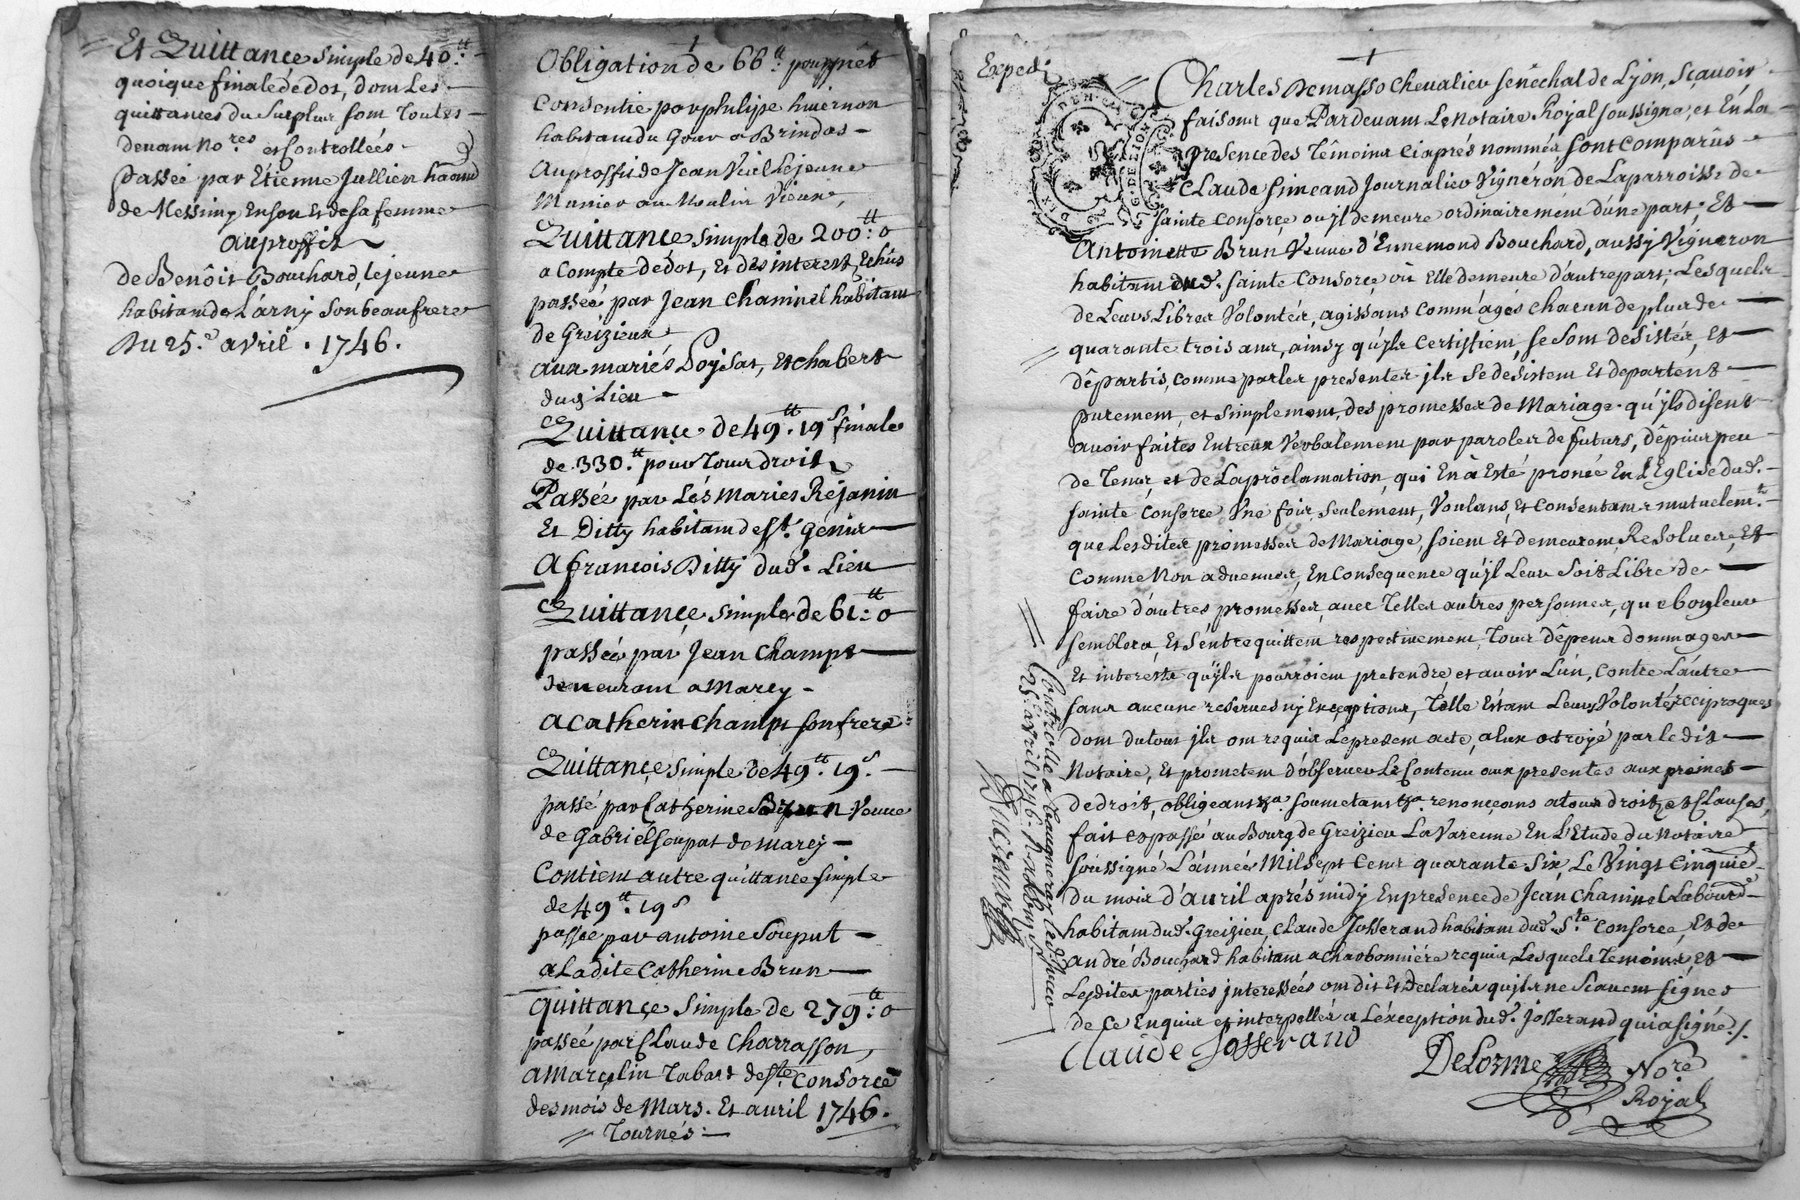 Et Quittance simple de 40.tt
quoique finale de dot, dont Les
quittances du Surplus sont Toutes
devant No.res et Controllées
passée par Etienne Jullien
de Messimy En son Et de sa femme
auproffit
de Benôit Bouchard, lejeune
habitant de Larny Son beaufrere
Du 25.e avril . 1746.
Obligation de 66.tt pour prêt
Consentie par philipe
habitant du a Brindas
Auproffit de Jean Viel Lejeune
Munier au Moulin Vieux,
Quittance simple de 200.tt:o
a Compte dedot, Et des interest Echûs
passeé par Jean Chaninel habitant
de Greizieux
aux mariés Loysat, Et chabert
dud. Lieu
Quittance de 49.tt 19s finale
de 330.tt pour Tour droit
Passée par Les Maries Réjanin
Et Ditty habitant de St. Génis
A francois Ditty dud. Lieu
Quittance simple de 61.tt:o
passée par Jean Champt
demeurant a Marcy
a Catherin Champt son frere
Quittance simple de 49.tt 19.s
passé par Catherine Brun Veuve
de Gabriel Soupat de marcy
Contient autre quittance simple
de 49.tt 19s
passée par antoine Souput
a Ladite Catherine Brun
quittance simple de 279.tt:o
passée par Claude Charrasson,
a Marcelin Tabard de Ste. Consorce
des mois de Mars. Et avril 1746.
Tournés:
Exped:
Charles Demasso Chevalier Senéchal de Lyon, Sçavoir
faisons que Pardevant Le Notaire Royal soussigné, et En La
presence des Têmoins Ciaprés nommés sont Comparûs
Claude Simeand Journalier Vignéron de Laparroisse de
sainte Consorce ou jl demeure ordinairement d'une part; Et
Antoinette Brun Veuve d'Ennemond Bouchard, aussy Vigneron
habitant dud. sainte Consorce où Elle demeure d'autre part; Lesquels
de Leurs Libres Volontés, agissans Comm'agés chacun de plus de
quarante trois ans, ainsy qu'jls Certiffient, se sont desistés, et
dêpartis, comme par les presentes jls se desistent Et departent
purement, et simplement, des promesses de Mariage qu'jls disent
avoir faites Entreux Verbalement par paroles de futurs, dêpuis peu
de Tems, et de La proclamation, qui En à Esté pronée En L'Eglise dud.
sainte Consorce Vne fois, seulement, Voulans, et Consentans mutuelemt.
que Lesdites promesses de Mariage, soient Et demeurent Resolues, Et
Comme Non advenues, En Consequence qu'jl Leur Soit Libre de
faire d'autres promesses, avec Telles autres personnes, que bon leur
semblera, Et s'entrequittent respectivement, Tour dêpens dommages
Et interests qu'jls pourroient pretendre, et avoir L'un, Contre L'autre
sans aucune reserves ny Exceptions, Telle Etant Leurs Volontés reciproques
dont du tout jls ont requis Le present acte, a Eux octroyé par ledit
Notaire, Et promettent d'observer Le Contenu aux presentes aux peines
de droit, obligeans &a. soumetans &a. renonçeans a tous droits et Clauses,
fait et passé au Bourg de Greizieu La Varenne En L'Etude du Notaire
soussigné L'année Mil Sept Cens quarante Six, Le Vingt Cinquie.
du mois d'avril aprés midy En presence de Jean Chaninel Labourd.
habitant dud. Greizieu, Claude Josserand habitant dud. Ste. Consorce, Et de
andré Bouchard habitant a Charbonniére requis, Lesquels Temoins et
Lesdites parties jnteressées ont dit Et Declarés qu'jls ne Scavent signer
de Ce Enquis et interpellés a L'exception dud. Josserand qui a signé./.
Claude Josserand
DeLorme Nore.
Royal
Controllé a Vaugneray le dit jour
25e. avril 1746. R.